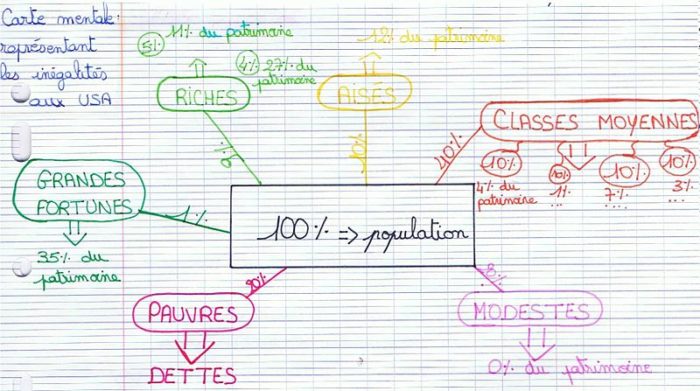 Carte mentale:
représentant
les inégalités
aux USA
5% 11% du patrimoine
4% 27% du
patrimoine
RICHES
12% du patrimoine
AISÉS
10%
CLASSES MOYENNES
40%
10% 10% 10% 10%
4% du
patrimoine
11%
...
7%
...
3%
...
GRANDES
FORTUNES
1%
35% du
patrimoine
100% => population
20%
PAUVRES
DETTES
MODESTES
0% du patrimoine